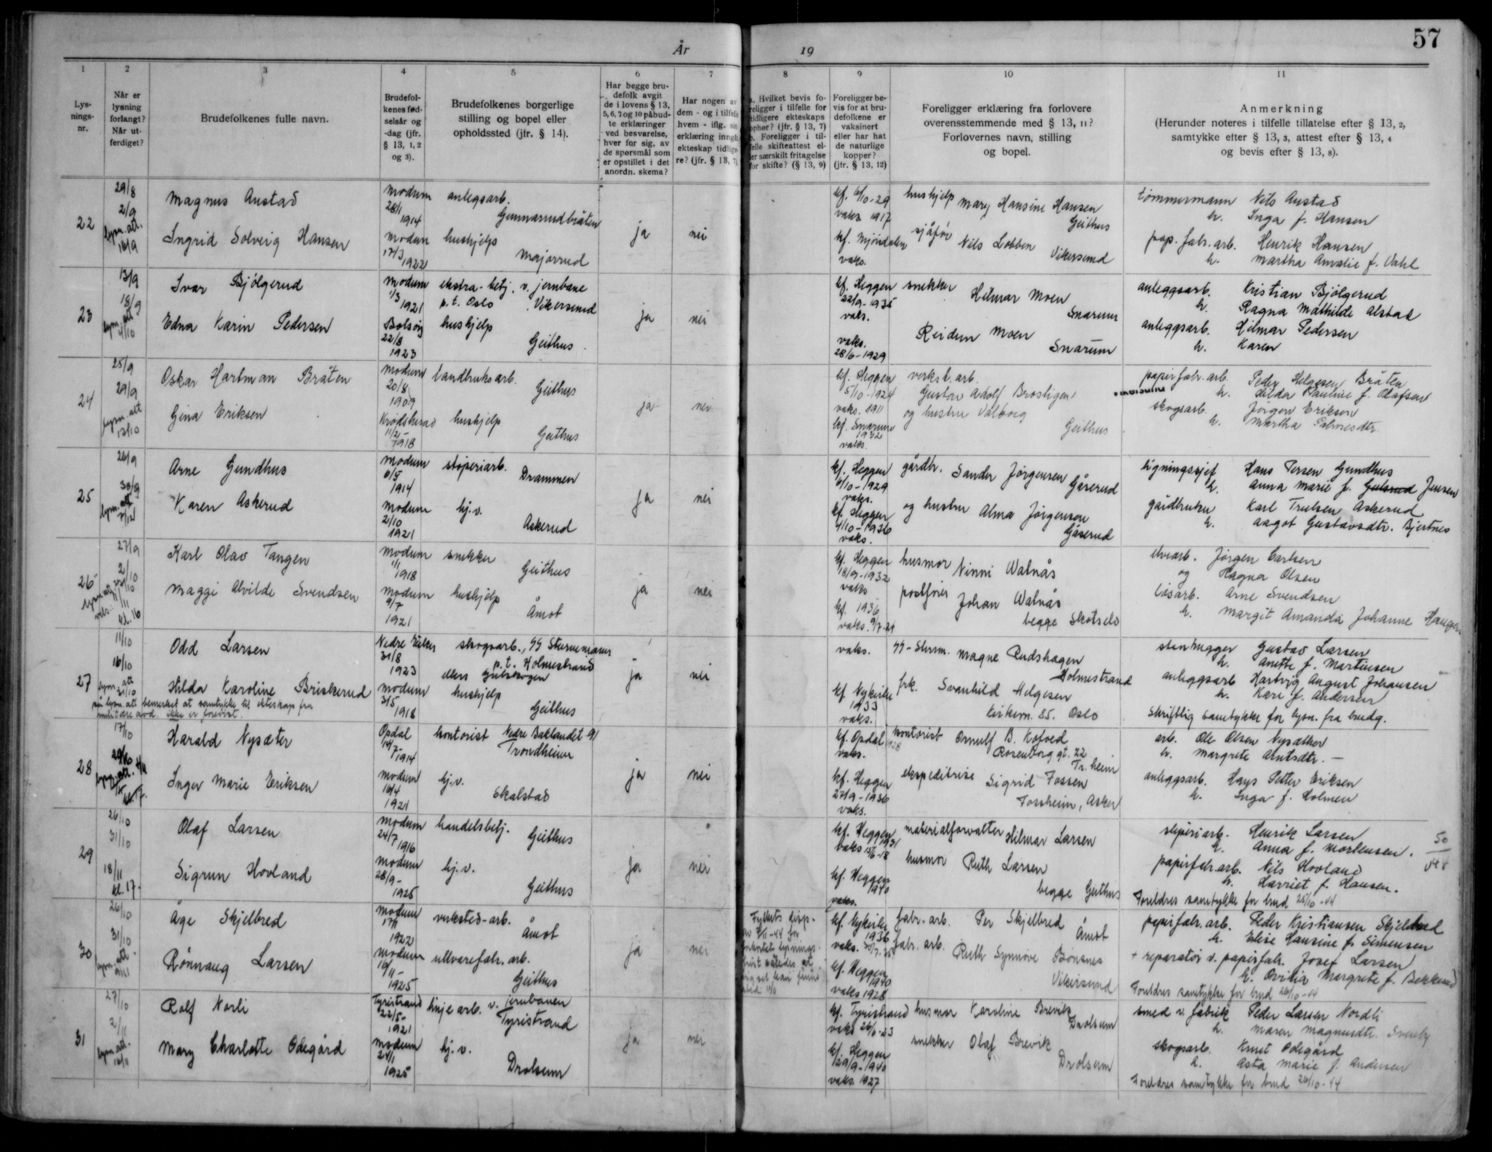 År
19
57
1
2
3
4
5
6
7
8
9
10
11
Lys-
nings-
nr.
Når er
lysning
forlangt?
Når ut-
ferdiget?
Brudefolkenes fulle navn.
Brudefol-
kenes fød-
selsår og
-dag (jfr.
§ 13, 1, 2
og 3).
Brudefolkenes borgerlige
stilling og bopel eller
opholdssted (jfr. § 14).
Har begge bru-
defolk avgit
de i lovens § 13,
5, 6, 7 og 10 påbud-
te erklæringer
ved besvarelse,
hver for sig, av
de spørsmål som
er opstillet i det
anordn. skema?
Har nogen av
dem - og i tilfelle
hvem - iflg. sin
erklæring inngått
ekteskap tidlige-
re? (jfr. § 13, 7).
Hvilket bevis fo-
religger i tilfelle for
tidligere ekteskaps
ophør? (jfr. § 13, 7)
Foreligger i til-
felle skifteattest el-
ler særskilt fritagelse
for skifte? (§ 13, 9)
Foreligger be-
vis for at bru-
defolkene er
vaksinert
eller har hat
de naturlige
kopper?
(jfr. § 13, 12)
Foreligger erklæring fra forlovere
overensstemmende med § 13, 11?
Forlovernes navn, stilling
og bopel.
Anmerkning
(Herunder noteres i tilfelle tillatelse efter § 13, 2,
samtykke efter § 13, 3, attest efter § 13, 4
og bevis efter § 13, 8).
22
29/8
2/9
lysn.att.
16/9
Magnus Anstad
Modum
1914
anlegsarb.
Gunnarudbråten
Ingrid Solveig Hansen
Modum
17/3
1922
hushjelp
ja
nei
kf. 6/10-29
vaks 1917
hushjelp Mary Hansine Hansen
Geithus
vaks.
sjåfør Nils Lobben
Vikersund
tømmermann Nils Anstad
h. Inga f. Hansen
pap.fabr.arb. Henrik Hansen
h. Martha Amalie f. Dahl
23
13/9
18/9
Ivar Bjølgerud
Modum
1/3
1921
ekstra-betj. v. jernbane
p.t. Oslo Vikersund
Edna Karin Pedersen
22/8
1923
hushjelp
Geithus
ja
nei
kf. Heggen
22/9-1935
vaks.
snekker Hilmar Moen
Snarum
vaks.
28/6-1929
Reidun Moen
Snarum
anleggsarb. Kristian Bjølgerud
h. Ragna Mathilde Alstad
anleggsarb. Hilmar Pedersen
h. Karen
24
25/9
29/9
lysn.att
13/10
Oskar Hartman Bråten
Modum
20/8
1909
landbruksarb.
Geithus
Gena Eriksen
Krødsherad
11/2-
1918
hushjelp
Geithus
ja
nei
kf. Heggen
5/10-1924
vaks. 1911
kf. Snarum
1932
vaks.
verkst.arb.
Gustav Adolf Brostigen
og hustru Valborg
Geithus
papirfabr.arb. Peder Helgesen Bråten
h. Hilda Pauline f. Olafsen
skogsarb. Jørgen Eriksen
h. Martha Palmesdtr.
25
26/9
30/9
Arne Gundhus
Modum
6/5
1914
støperiarb.
Drammen
Karen Askerud
Modum
21/10
1921
hj.v.
Askerud
ja
nei
kf. Heggen
6/10-1929
vaks.
kf. Heggen
4/10-1936
vaks.
gårdbr. Sander Jørgensen Gåserud
og hustru Alma Jørgensen
Gåserud
ligningssjef Hans Persen Gundhus
h. Anna Marie f. Gulsrud Jensen
gårdbruker Karl Trulsen Askerud
h. Aagot Gustavsdtr. Bjertnes
26
27/9
2/10
kl. 16
Karl Olav Tangen
Modum
1/1
1918
snekker
Geithus
Maggi Alvilde Svendsen
Modum
9/7
1921
hushjelp
Åmot
ja
nei
kf. Heggen
18/9-1932
vaks
kf. 1936
vaks. 9/7-24
husmor Ninni Walnås
postfører
Johan Walnås
begge Skotselv
elvearb. Jørgen Carlsen
og Ragna Olsen
løsarb. Arne Svendsen
h. Margit Amanda Johanne Haugen
27
11/10
16/10
Odd Larsen
Nedre Eiker
31/8
1923
skogsarb., SS Sturmmann
p.t. Holmestrand
ellers Gulskogen
Hilda Karoline Briskerud
Modum
31/5
1918
hushjelp
Geithus
på lysn.att bemerket at samtykke til ekteskap fra
militære avd. ikke er forevist.
ja
nei
vaks.
kf. Nykirke
1933
vaks.
SS-Sturm. Magne Rudshagen
Holmestrand
frk. Svanhild Helgesen
Eirikem. 85. Oslo
stenhugger Gustav Larsen
h. Anette f. Martinsen
anleggsarb Hartvig August Johansen
h. Kari f. Andersen
Skriftlig samtykke for lysn. fra brudg.
28
17/10
Harald Nysæter
Opdal
14/7-
1914
kontorist Nedre Baklandet 41
Trondheim
Inger Marie Eriksen
Modum
16/4
1921
hj.v.
Skalstad
ja
nei
kf. Opdal
vaks. 1928
kf. Heggen
27/9-1936
vaks.
kontorist Ornulf B. Kofoed
Rosenborg gt. 22
Tr.heim
ekspeditrise Sigrid Fossen
Fossheim, Asker
arb. Ole Olsen Nysæther
h. Margrete Arntsdtr.-
anleggsarb. Hans Petter Eriksen
h. Inga f. Holmen
29
26/10
31/10
18/11
kl. 17-
Olaf Larsen
Modum
24/7 1916
handelsbetj.
Geithus
Sigrun Hovland
Modum
28/9-
1925
hj.v.
Geithus
ja
nei
kf. Heggen
1931
kf. Heggen
1940
vaks.
materialforvalter Hilmar Larsen
husmor Ruth Larsen
begge Geithus
støperiarb. Henrik Larsen
h. Anna f. Mortensen.
papirfabr.arb. Nils Hovland
h. Harriet f. Hansen.
Foreldres samtykke for brud 26/10-44
50
30
26/10
31/10
Åge Skjelbred
Modum
17/1
1922
verksted-arb.
Åmot
Rønnaug Larsen
Modum
10/11-
1925
ullvarefabr.arb.
Geithus
ja
nei
kf. Nykirke
1936
kf. Heggen
1940
vaks 1928
fabr.arb. Per Skjelbred
Åmot
fabr.arb. Ruth Synnøve Børsnes
Vikersund
papirfabr.arb. Peder Kristiansen Skjelbred
h. Elise Hansine f. Simensen
+ reparatør v. papirfabr. Josef Larsen
h. Ovidia Margrete f. Bakkerud
Foreldres samtykke for brud 26/10-44
31
27/10
2/11
Rolf Norli
Tyristrand
22/5-
1921
linjearb. v. Jernbanen
Tyristrand
Mary Charlotte Ødegård
Modum
24/1
1925
hj.v.
Drolsum
ja
nei
kf. Tyristrand
kf. Heggen
29/9-1940
vaks 1927
husmor Karoline Brevik
Drolsum
snekker Olaf Brevik
Drolsum
smed v. fabrik Peder Larsen Nordli
h. Maren Magnusdtr.
skogsarb. Knut Ødegård
h. Asta Marie f. Andersen
Foreldres samtykke for brud 26/10-44